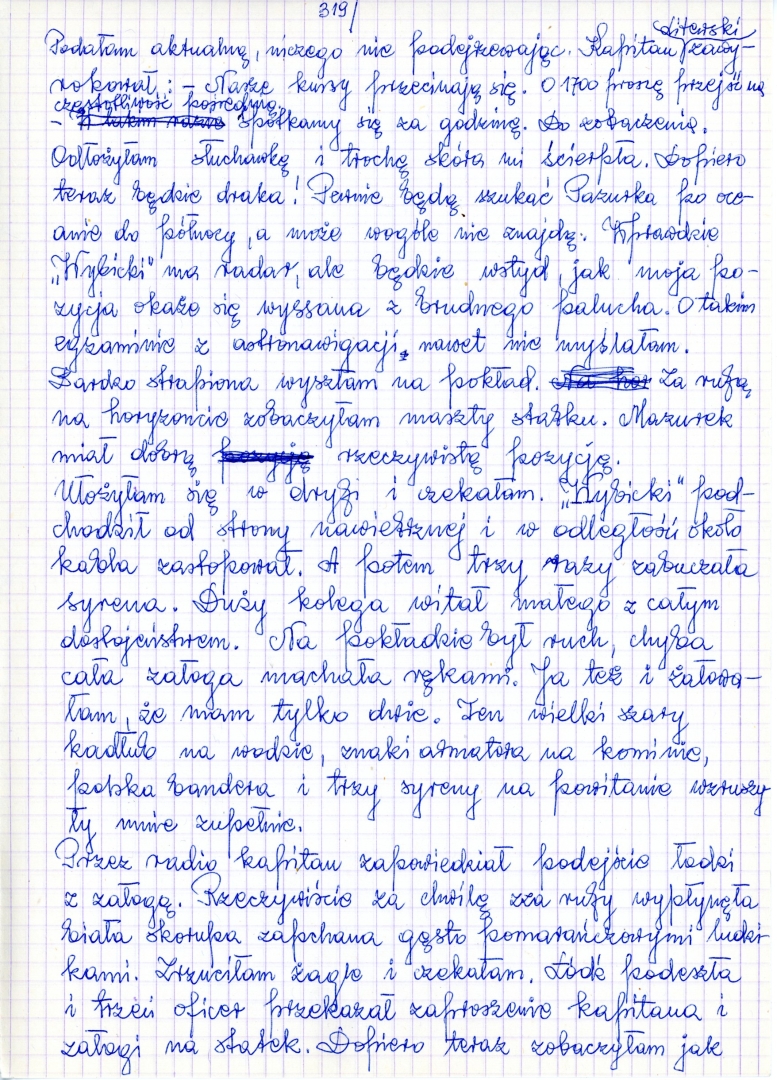 319/
Podałam aktualną, niczego nie podejrzewając. Kapitan Literski zawy-
rokował: - Nasze kursy przecinają się. O 1700 proszę przejść na
częstotliwość pośrednią.
- W takim razie spotkamy się za godzinę. Do zobaczenia.
Odłożyłam słuchawkę i trochę skóra mi ścierpła. Dopiero
teraz będzie draka! Pewnie będą szukać Pazurka po oce-
anie do północy, a może wogóle nie znajdą. Wprawdzie
„Wybicki" ma radar, ale będzie wstyd, jak moja po-
zycja okaże się wyssana z brudnego palucha. O takim
egzaminie z astronawigacji, nawet nie myślałam.
Bardzo strapiona wyszłam na pokład. Za rufą
na horyzoncie zobaczyłam maszty statku. Mazurek
miał dobrą pozycję rzeczywistą pozycję.
Ułożyłam się w dryfi i czekałam. „Wybicki" pod-
chodził od strony nawietrznej i w odległości około
kabla zastopował. A potem trzy razy zabuczała
syrena. Duży kolega witał małego z całym
dostojeństwem. Na pokładzie był ruch, chyba
cała załoga machała rękami. Ja też i żałowa-
łam, że mam tylko dwie. Ten wielki szary
kadłub na wodzie, znaki armatora na kominie,
polska bandera i trzy syreny na powitanie wzruszy-
ły mnie zupełnie.
Przez radio kapitan zapowiedział podejście łodzi
z załogą. Rzeczywiście za chwilę zza rufy wypłynęła
biała skorupa zapchana gęsto pomarańczowymi ludzi-
kami. Zrzuciłam żagle i czekałam. Łódź podeszła
i trzeci oficer przekazał zaproszenie kapitana i
załogi na statek. Dopiero teraz zobaczyłam jak